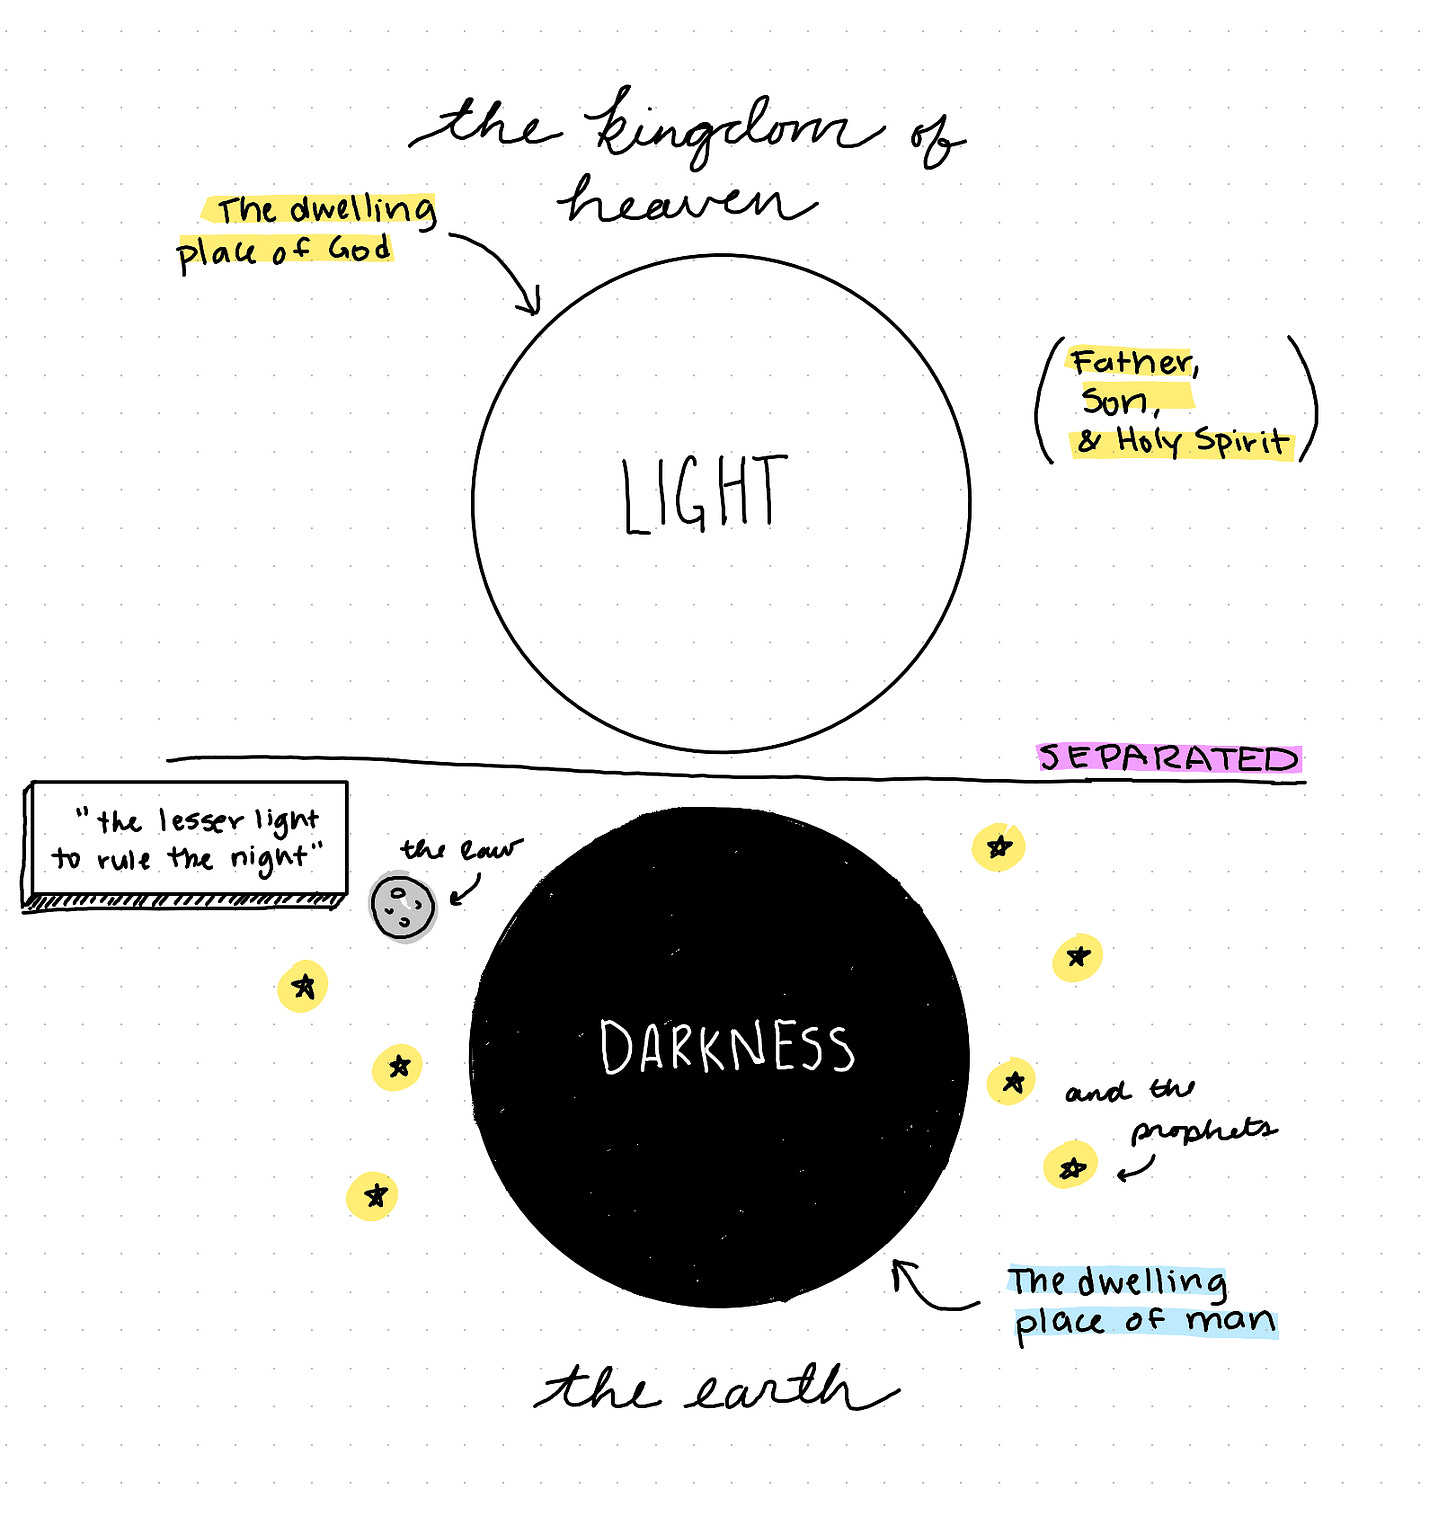 the kingdom of
heaven
The dwelling
place of God
LIGHT
(Father,
Son,
& Holy Spirit)
SEPARATED
"the lesser light
to rule the night"
the law
DARKNESS
and the
prophets
The dwelling
place of man
the earth